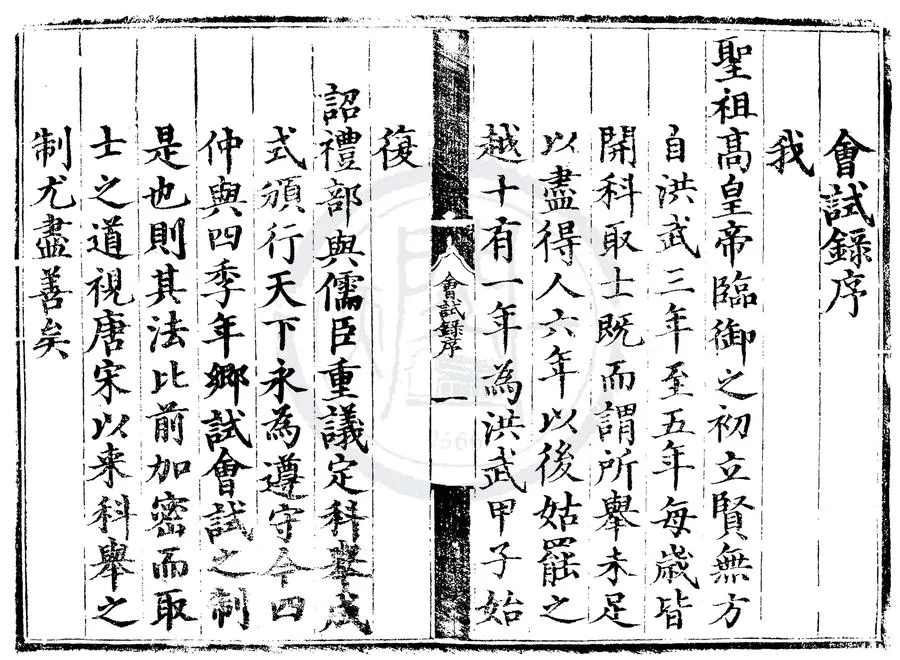 會試録序
我
聖祖高皇帝臨御之初立賢無方
自洪武三年至五年每歲皆
開科取士既而謂所舉未足
以盡得人六年以後姑罷之
越十有一年為洪武甲子始
會試録序
一
復
詔禮部與儒臣重議定科舉成
式頒行天下永為遵守今四
仲與四季年鄉試會試之制
是也則其法比前加密而取
士之道視唐宋以来科舉之
制尤盡善矣